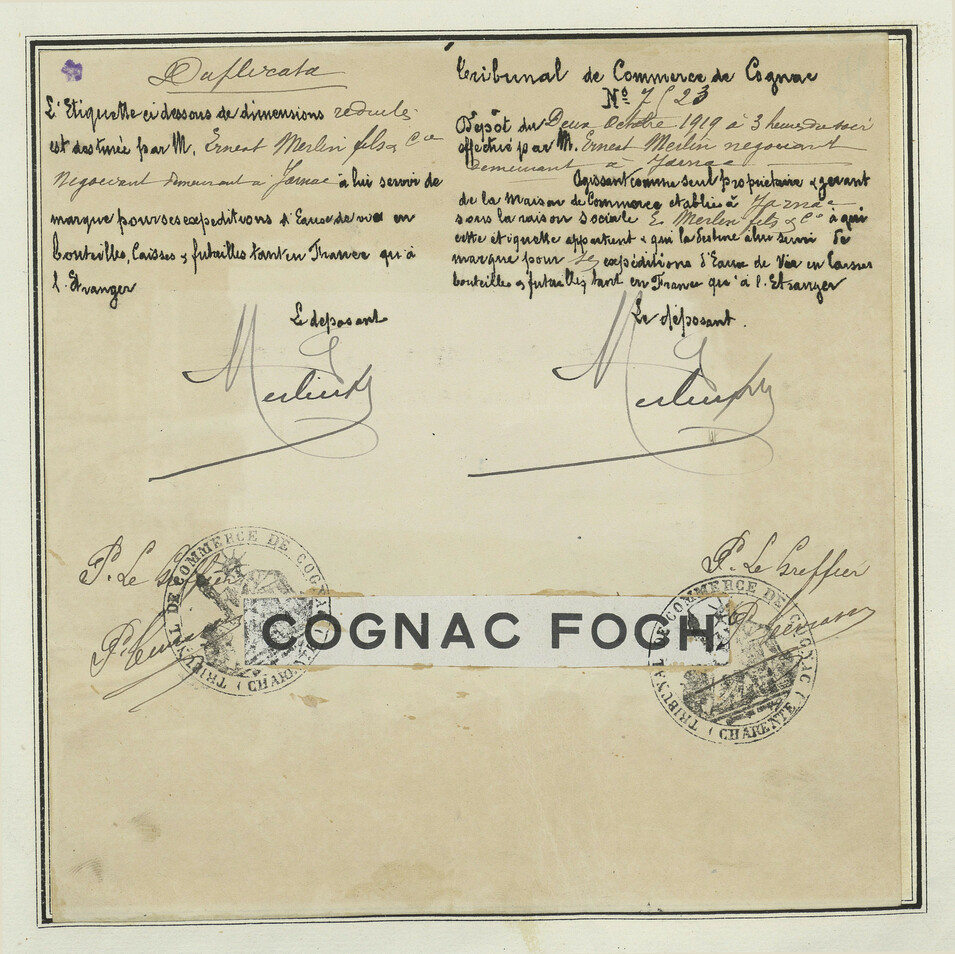 Duplicata
L'Etiquette ci dessous de dimensions reduites
est destinée par M. Ernest Merlin fils & Cie
negociant demeurant à Jarnac à lui servir de
marque pour ses expeditions d'Eaux de vie en
bouteilles, Caisses & futailles tant en France qu'à
l'Etranger
Le deposant
Merlin fils
P. Le Greffier
TRIBUNAL DE COMMERCE DE COGNAC (CHARENTE)
Tribunal de Commerce de Cognac
No 7523
Dépôt du Deux Octobre 1919 à 3 heures du soir
effectué par M. Ernest Merlin negociant
demeurant à Jarnac
Agissant comme seul propriétaire & gerant
de la maison de Commerce etablie à Jarnac
sous la raison sociale E. Merlin fils & Cie à qui
cette étiquette appartient & qui la destine à lui servir de
marque pour ses expéditions d'Eaux de Vie en Caisses
bouteilles & futailles, tant en France qu'à l'Etranger
Le déposant.
Merlin fils
P. Le Greffier
COGNAC FOCH
TRIBUNAL DE COMMERCE DE COGNAC (CHARENTE)